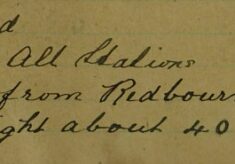 d
All Stations
from Redbour
ght about 40